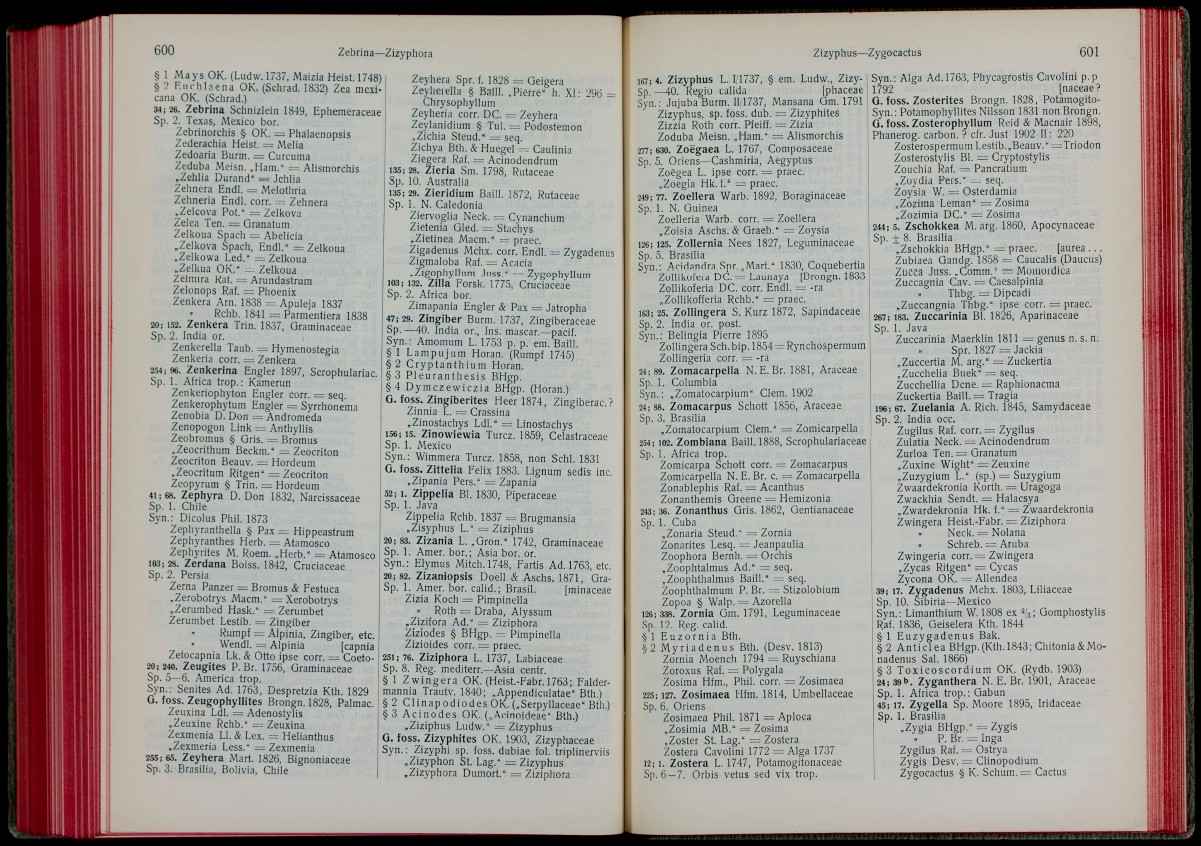 600
Zebrina—Zizyphora
§ 1 Mays OK. (Ludw. 1737, Maizia Heist. 1748)
§ 2 Euchlaena OK. (Schrad. 1832) Zea mexi-
cana OK. (Schrad.)
34; 26. Zebrina Schnizlein 1849, Ephemeraceae
Sp. 2. Texas, Mexico bor.
Zebrinorchis § OK. = Phalaenopsis
Zederachia Heist. = Melia
Zedoaria Burm. = Curcuma
Zeduba Meisn. „Ham.“ = Alismorchis
„Zehlia Durand“ = Jehlia
Zehnera Endl. = Melothria
Zehneria Endl. corr. = Zehnera
„Zelcova Pot.“ = Zelkova
Zelea Ten. = Granatum
Zelkoua Spach = Abelicia
„Zelkova Spach, Endl.“ = Zelkoua
„Zelkowa Led.“ = Zelkoua
„Zelkua OK.“ = Zelkoua
Zelmira Raf. = Arundastrum
Zelonops Raf. = Phoenix
Zenkera Arn. 1838 = Apuleja 1837
„ Rchb. 1841 = Parmentiera 1838
20; 152. Zenkera Trin. 1837, Graminaceae
Sp. 2. India or.
Zenkerella Taub. = Hymenostegia
Zenkeria corr. = Zenkera
254; 96. Zenkerina Engler 1897, Scrophulariac.
Sp. 1. Africa trop.: Kamerun
Zenkeriophyton Engler corr. = seq.
Zenkerophytum Engler = Syrrhonema
Zenobia D. Don = Andromeda
Zenopogon Link = Anthyllis
Zeobromus § Gris. = Bromus
„Zeocrithum Beckm.“ = Zeocriton
Zeocriton Beauv. = Hordeum
„Zeocritum Ritgen“ = Zeocriton
Zeopyrum § Trin. = Hordeum
41; 68. Zephyra D. Don 1832, Narcissaceae
Sp. 1. Chile
Syn.: Dicolus Phil. 1873
Zephyranthella § Pax = Hippeastrum
Zephyranthes Herb. = Atamosco
Zephyrites M. Roem. „Herb.“ = Atamosco
103; 28. Zerdana Boiss. 1842, Cruciaceae
Sp. 2. Persia
Zerna Panzer = Bromus & Festuca
„Zerobotrys Macm.“ = Xerobotrys
„Zerumbed Hask.“ = Zerumbet
Zerumbet Lestib. = Zingiber
„ Rumpf = Alpinia, Zingiber, etc.
„ Wendl. = Alpinia [capnia
Zetocapnia Lk. & Otto ipse corr. = Coeto-
20; 240. Zeugites P. Br. 1756, Graminaceae
Sp. 5—6. America trop.
Syn.: Senites Ad. 1763, Despretzia Kth. 1829
G. foss. Zeugophyllites Brongn. 1828, Palmac.
Zeuxina Ldl. = Adenostylis
„Zeuxine Rchb.“ = Zeuxina
Zexmenia Ll. & Lex. = Helianthus
„Zexmeria Less.“ = Zexmenia
255; 65. Zeyhera Mart. 1826, Bignoniaceae
Sp. 3. Brasilia, Bolivia, Chile
Zeyhera Spr. f. 1828 = Geigera
Zeyherella § Baill. „Pierre“ h. XI: 296 =
Chrysophyllum
Zeyheria corr. DC. = Zeyhera
Zeylanidium § Tul. = Podostemon
Zichia Steud.“ = seq.
Zichya Bth. & Huegel = Caulinia
Ziegera Raf. = Acinodendrum
135; 28. Zieria Sm. 1798, Rutaceae
Sp. 10. Australia
135; 29. Zieridium Baill. 1872, Rutaceae
Sp. 1. N. Caledonia
Ziervoglia Neck. = Cynanchum
Zietenia Gled. = Stachys
„Zietinea Macm.“ = praec.
Zigadenus Mchx. corr. Endl. = Zygadenus
Zigmaloba Raf. = Acacia
„Zigophyllum Juss.“ = Zygophyllum
103; 132. Zilla Forsk. 1775, Cruciaceae
Sp. 2. Africa bor.
Zimapania Engler & Pax = Jatropha
47; 29. Zingiber Burm. 1737, Zingiberaceae
Sp. —40. India or., Ins. mascar.—pacif.
Syn.: Amomum L. 1753 p. p. em. Baill.
§ 1 Lampujum Horan. (Rumpf 1745)
§ 2 Cryptanthium Horan.
§ 3 Pleuranthesis BHgp.
§ 4 Dymczewiczia BHgp. (Horan.)
G. foss. Zingiberites Heer 1874, Zingiberac.?
Zinnia L. = Crassina
„Zinostachys Ldl.“ = Linostachys
156; 15. Zinowiewia Turcz. 1859, Celastraceae
Sp. 1. Mexico
Syn.: Wimmera Turcz. 1858, non Schl. 1831
G. foss. Zittelia Felix 1883. Lignum sedis inc.
„Zipania Pers.“ = Zapania
52; 1. Zippelia Bl. 1830, Piperaceae
Sp. 1. Java
Zippelia Rchb. 1837 = Brugmansia
„Zisyphus L.“ = Ziziphus
20; 83. Zizania L. „Gron.“ 1742, Graminaceae
Sp. 1. Amer. bor.; Asia bor. or.
Syn.: Elymus Mitch. 1748, Fartis Ad. 1763, etc.
20; 82. Zizaniopsis Doell & Aschs. 1871, Gra-
Sp. 1. Amer. bor. calid.; Brasil. [minaceae
Zizia Koch = Pimpinella
„ Roth = Draba, Alyssum
„Zizifora Ad.“ = Ziziphora
Ziziodes § BHgp. = Pimpinella
Zizioides corr. = praec.
251; 76. Ziziphora L. 1737, Labiaceae
Sp. 8. Reg. mediterr.—Asia centr.
§ 1 Zwingera OK. (Heist.-Fabr. 1763; Falder-
mannia Trautv. 1840; „Appendiculatae“ Bth.)
§ 2 Clinapodiodes OK. („Serpyllaceae“ Bth.)
§ 3 Acinodes OK. („Acinoideae“ Bth.)
„Ziziphus Ludw.“ = Zizyphus
G. foss. Zizyphites OK. 1903, Zizyphaceae
Syn.: Zizyphi sp. foss. dubiae fol. triplinerviis
„Zizyphon St. Lag.“ = Zizyphus
„Zizyphora Dumort.“ = Ziziphora
Zizyphus—Zygocactus
601
167; 4. Zizyphus L. I/1737, § em. Ludw., Zizy-
Sp. —40. Regio calida [phaceae
Syn.: Jujuba Burm. II/1737, Mansana Gm. 1791
Zizyphus, sp. foss. dub. = Zizyphites
Zizzia Roth corr. Pfeiff. = Zizia
Zoduba Meisn. „Ham.“ = Alismorchis
277; 630. Zoëgaea L. 1767, Composaceae
Sp. 5. Oriens—Cashmiria, Aegyptus
Zoëgea L. ipse corr. = praec.
„Zoegia Hk. f.“ = praec.
249; 77. Zoellera Warb. 1892, Boraginaceae
Sp. 1. N. Guinea
Zoelleria Warb. corr. = Zoellera
„Zoisia Aschs. & Graeb.“ = Zoysia
126; 125. Zollernia Nees 1827, Leguminaceae
Sp. 5. Brasilia
Syn.: Acidandra Spr. „Mart.“ 1830, Coquebertia
Zollikofera DC. = Launaya [Brongn. 1833
Zollikoferia DC. corr. Endl. = -ra
„Zollikofferia Rchb.“ = praec.
163; 25. Zollingera S. Kurz 1872, Sapindaceae
Sp. 2. India or. post.
Syn.: Belingia Pierre 1895
Zollingera Sch. bip. 1854 = Rynchospermum
Zollingeria corr. = -ra
24; 89. Zomacarpella N. E. Br. 1881, Araceae
Sp. 1. Columbia
Syn.: „Zomatocarpium“ Clem. 1902
24; 88. Zomacarpus Schott 1856, Araceae
Sp. 3. Brasilia
„Zomatocarpium Clem.“ = Zomicarpella
254; 102. Zombiana Baill. 1888, Scrophulariaceae
Sp. 1. Africa trop.
Zomicarpa Schott corr. = Zomacarpus
Zomicarpella N. E. Br. c. = Zomacarpella
Zonablephis Raf. = Acanthus
Zonanthemis Greene = Hemizonia
243; 36. Zonanthus Gris. 1862, Gentianaceae
Sp. 1. Cuba
„Zonaria Steud.“ = Zornia
Zonarites Lesq. = Jeanpaulia
Zoophora Bernh. = Orchis
„Zoophtalmus Ad.“ = seq.
„Zoophthalmus Baill.“ = seq.
Zoophthalmum P. Br. = Stizolobium
Zopoa § Walp. = Azorella
126; 338. Zornia Gm. 1791, Leguminaceae
Sp. 12. Reg. calid.
§ 1 Euzornia Bth.
§ 2 Myriadenus Bth. (Desv. 1813)
Zornia Moench 1794 = Ruyschiana
Zoroxus Raf. = Polygala
Zosima Hfm., Phil. corr. = Zosimaea
225; 127. Zosimaea Hfm. 1814, Umbellaceae
Sp. 6. Oriens
Zosimaea Phil. 1871 = Aploca
„Zosimia MB.“ = Zosima
„Zoster St. Lag.“ = Zostera
Zostera Cavolini 1772 = Alga 1737
12; 1. Zostera L. 1747, Potamogitonaceae
Sp. 6—7. Orbis vetus sed vix trop.
Syn.: Alga Ad. 1763, Phycagrostis Cavolini p. p
1792 [naceae?
G. foss. Zosterites Brongn. 1828, Potamogito-
Syn.: Potamophyllites Nilsson 1831 non Brongn.
G. foss. Zosterophyllum Reid & Macnair 1898,
Phanerog. carbon. ? cfr. Just 1902 II: 220
Zosterospermum Lestib. „Beauv.“ = Triodon
Zosterostylis Bl. = Cryptostylis
Zouchia Raf. = Pancratium
„Zoydia Pers.“ = seq.
Zoysia W. = Osterdamia
„Zozima Leman“ = Zosima
„Zozimia DC.“ = Zosima
244; 5. Zschokkea M. arg. 1860, Apocynaceae
Sp. ± 8. Brasilia
„Zschokkia BHgp.“ = praec. [aurea ...
Zubiaea Gandg. 1858 = Caucalis (Daucus)
Zucca Juss. „Comm.“ = Momordica
Zuccagnia Cav. = Caesalpinia
„ Thbg. = Dipcadi
„Zuccangnia Thbg.“ ipse corr. = praec.
267; 183. Zuccarinia Bl. 1826, Aparinaceae
Sp. 1. Java
Zuccarinia Maerklin 1811 = genus n. s. n.
„ Spr. 1827 = Jackia
„Zuccertia M. arg.“ = Zuckertia
„Zucchelia Buek“ = seq.
Zucchellia Dcne. = Raphionacma
Zuckertia Baill. = Tragia
196; 67. Zuelania A. Rich. 1845, Samydaceae
Sp. 2. India occ.
Zugilus Raf. corr. = Zygilus
Zulatia Neck. = Acinodendrum
Zurloa Ten. = Granatum
„Zuxine Wight“ = Zeuxine
„Zuzygium L.“ (sp.) = Suzygium
Zwaardekronia Korth. = Uragoga
Zwackhia Sendt. = Halacsya
„Zwardekronia Hk. f.“ = Zwaardekronia
Zwingera Heist.-Fabr. = Ziziphora
„ Neck. = Nolana
„ Schreb. = Aruba
Zwingeria corr. = Zwingera
„Zycas Ritgen“ = Cycas
Zycona OK. = Allendea
39; 17. Zygadenus Mchx. 1803, Liliaceae
Sp. 10. Sibiria—Mexico
Syn.: Limanthium W. 1808 ex ⁴/₅; Gomphostylis
Raf. 1836, Geiselera Kth. 1844
§ 1 Euzygadenus Bak.
§ 2 Anticlea BHgp. (Kth. 1843; Chitonia & Mo-
nadenus Sal. 1866)
§ 3 Toxicoscordium OK. (Rydb. 1903)
24; 39b. Zyganthera N. E. Br. 1901, Araceae
Sp. 1. Africa trop.: Gabun
45; 17. Zygella Sp. Moore 1895, Iridaceae
Sp. 1. Brasilia
„Zygia BHgp.“ = Zygis
„ P. Br. = Inga
Zygilus Raf. = Ostrya
Zygis Desv. = Clinopodium
Zygocactus § K. Schum. = Cactus